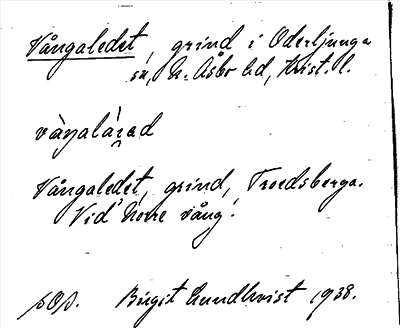 Vångaledet, grind i Oderljunga
sn, N. Åsbo hd, Krist. l.
Vångaledet, grind, Troedsberga.
Vid Norre vång.
Birgit Lundkvist 1938.